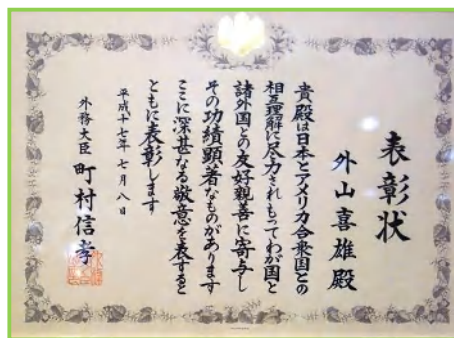 表彰状
外山喜雄殿
貴殿は日本とアメリカ合衆国との
相互理解に尽力されもってわが国と
諸外国との友好親善に寄与し
その功績顕著なものがあります
ここに深甚なる敬意を表すると
ともに表彰します
平成十七年七月八日
外務大臣 町村信孝